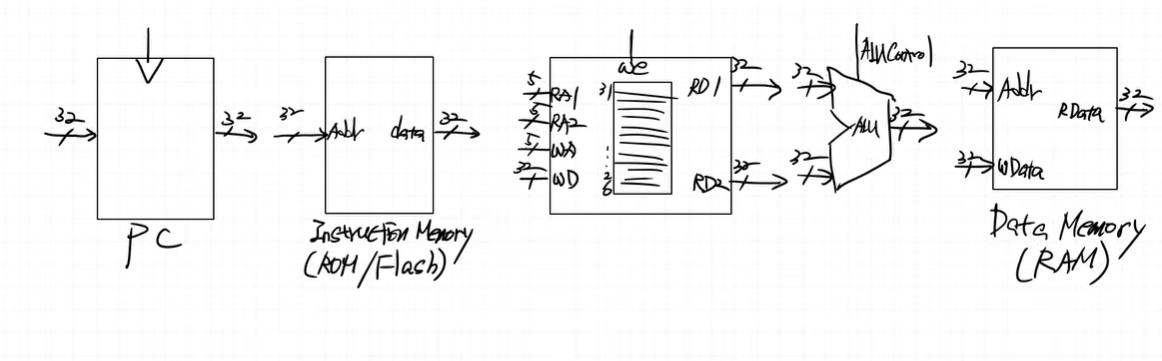 32
32
PC
32
Addr
data
32
Instruction Memory
(ROM/Flash)
we
5
RA1
5
RA2
5
WA
32
WD
31
2
0
RD1
32
RD2
32
32
32
ALU
ALUControl
32
32
Addr
RData
32
32
WData
Data Memory
(RAM)